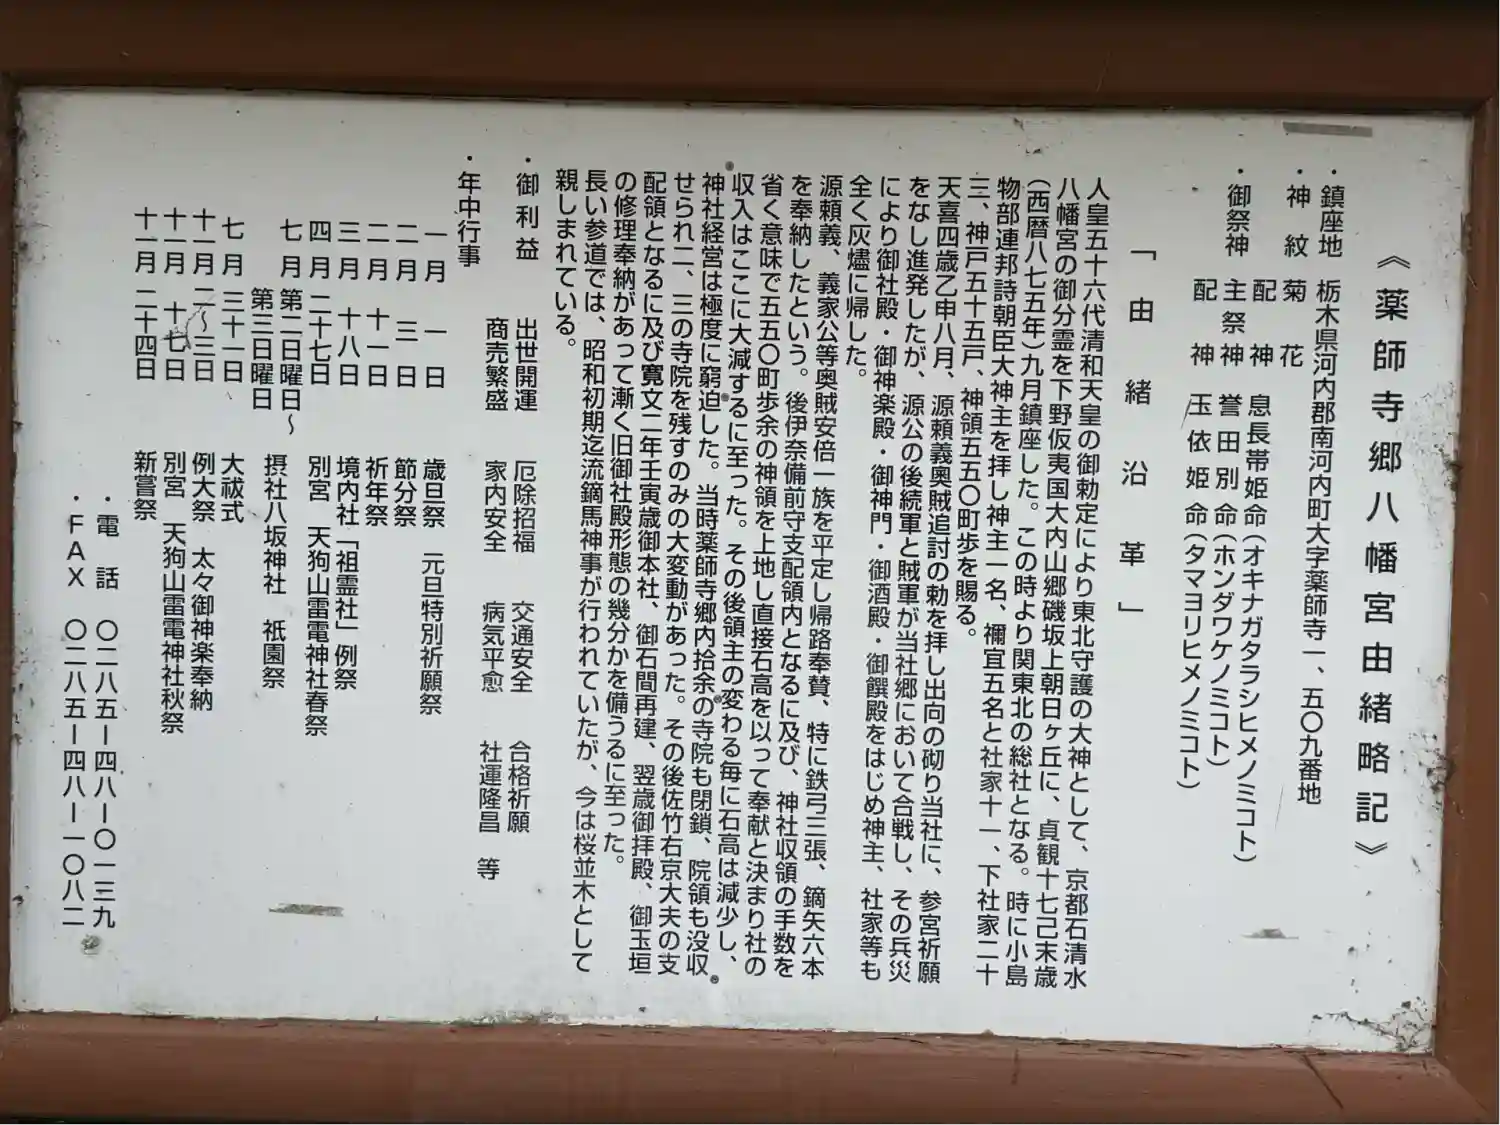 《薬師寺郷八幡宮由緒略記》
・鎮座地 栃木県河内郡南河内町大字薬師寺一、五〇九番地
・神紋 菊花
・御祭神 配神 息長帯姫命(オキナガタラシヒメノミコト)
主祭神 誉田別命(ホンダワケノミコト)
配神 玉依姫命(タマヨリヒメノミコト)
「由緒沿革」
人皇五十六代清和天皇の御勅定により東北守護の大神として、京都石清水
八幡宮の御分霊を下野仮夷国大内山郷磯坂上朝日ヶ丘に、貞観十七己末歳
(西暦八七五年)九月鎮座した。この時より関東北の総社となる。時に小島
物部連邦詩朝臣大神主を拝し神主一名、禰宜五名と社家十一、下社家二十
三、神戸五十五戸、神領五五〇町歩を賜る。
天喜四歳乙申八月、源頼義奥賊追討の勅を拝し出向の砌り当社に、参宮祈願
をなし進発したが、源公の後続軍と賊軍が当社郷において合戦し、その兵災
により御社殿・御神楽殿・御神門・御酒殿・御饌殿をはじめ神主、社家等も
全く灰燼に帰した。
源頼義、義家公等奥賊安倍一族を平定し帰路奉賛、特に鉄弓三張、鏑矢六本
を奉納したという。後伊奈備前守支配領内となるに及び、神社収領の手数を
省く意味で五五〇町歩余の神領を上地し直接石高を以って奉献と決まり社の
収入はここに大減するに至った。その後領主の変わる毎に石高は減少し、
神社経営は極度に窮迫した。当時薬師寺郷内拾余の寺院も閉鎖、院領も没収
せられ二、三の寺院を残すのみの大変動があった。その後佐竹右京大夫の支
配領となるに及び寛文二年壬寅歳御本社、御石間再建、翌歳御拝殿、御玉垣
の修理奉納があって漸く旧御社殿形態の幾分かを備うるに至った。
長い参道では、昭和初期迄流鏑馬神事が行われていたが、今は桜並木として
親しまれている。
・御利益 出世開運 厄除招福 交通安全 合格祈願
商売繁盛 家内安全 病気平愈 社運隆昌 等
・年中行事
一月 一日 歳旦祭 元旦特別祈願祭
二月 三日 節分祭
二月 十一日 祈年祭
三月 十八日 境内社「祖霊社」例祭
四月 二十七日 別宮 天狗山雷電神社春祭
七月 第二日曜日〜
第三日曜日 摂社八坂神社 祇園祭
七月 三十一日 大祓式
十一月 二〜三日 例大祭 太々御神楽奉納
十一月 十七日 別宮 天狗山雷電神社秋祭
十一月 二十四日 新嘗祭
・電話 〇二八五ー四八ー〇一三九
・FAX 〇二八五ー四八ー一〇八二